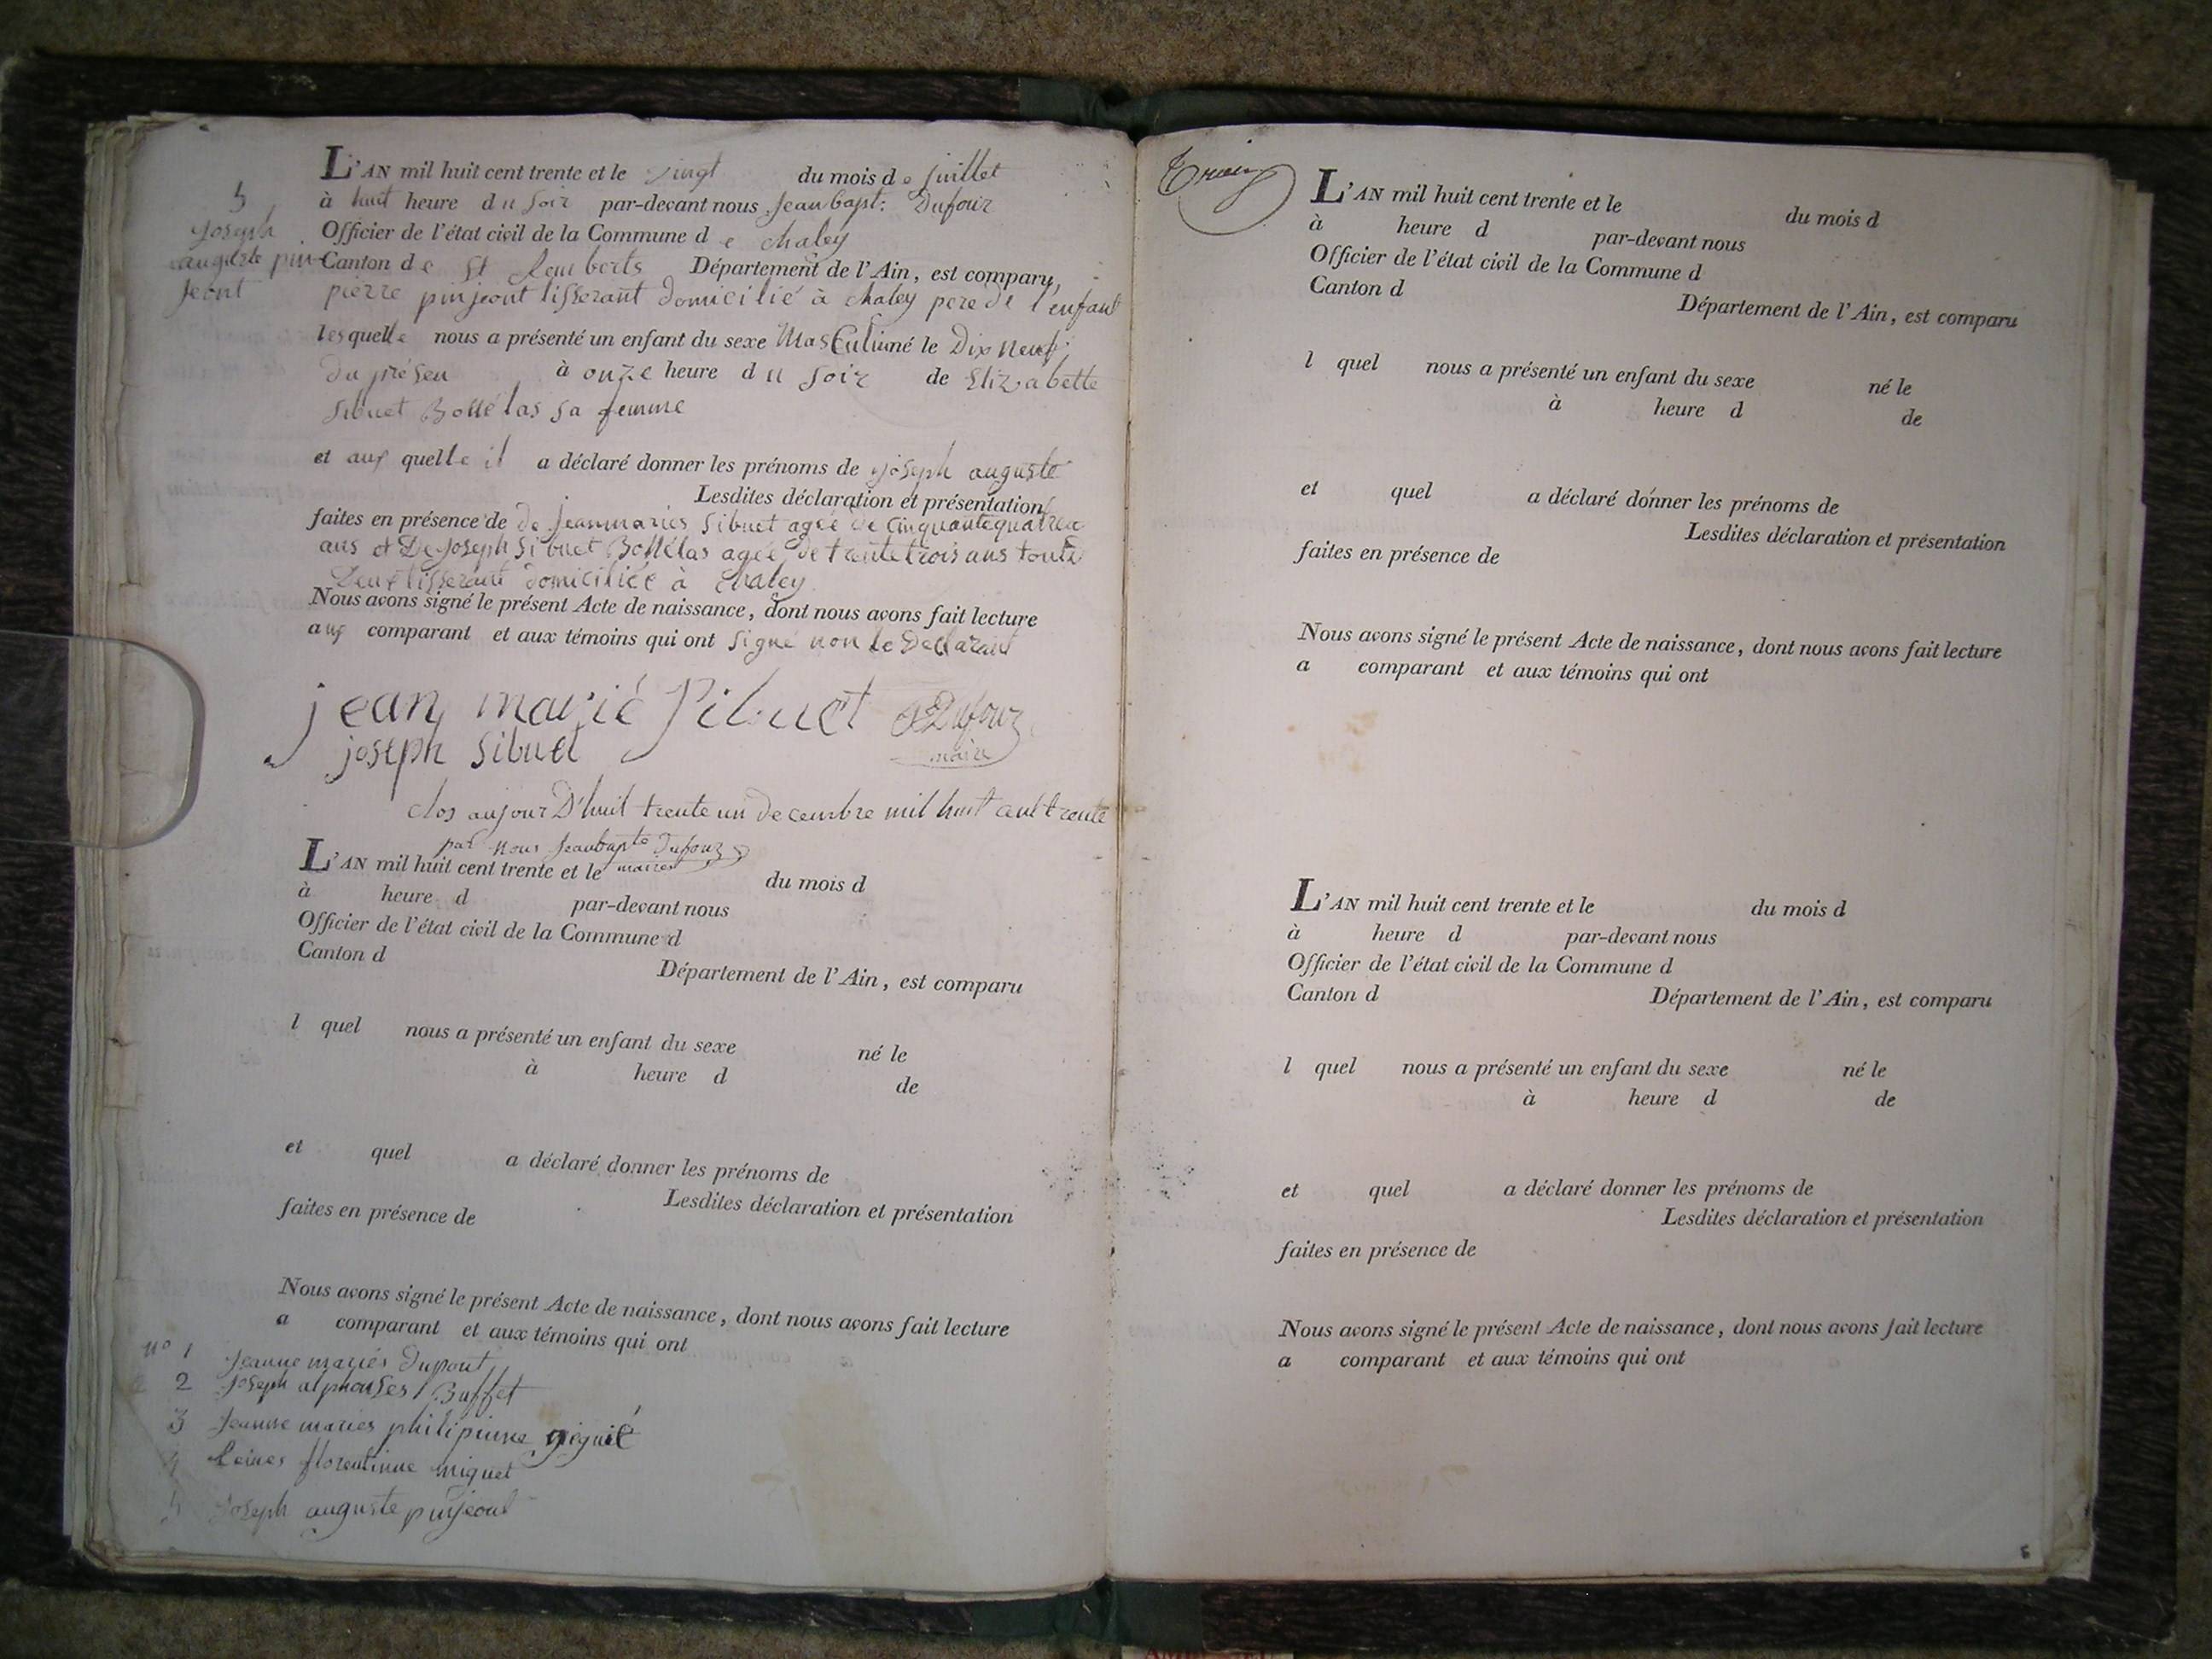 5
Joseph
auguste pin
Jeont
L'AN mil huit cent trente et le vingt du mois de juillet
à huit heure du soir par-devant nous Jean bapt: Dufour
Officier de l'état civil de la Commune de chaley
Canton de St Remberts Département de l'Ain, est comparu,
pierre pinjeont tisserant domicilié à chaley pere de l'enfant
lesquelle nous a présenté un enfant du sexe Masculin né le Dix neuf
du présen à onze heure du soir de Elizabette
Sibuet Bollélas sa femme
et aux quelle il a déclaré donner les prénoms de joseph auguste
Lesdites déclaration et présentation
faites en présence de de jeanmaries Sibuet ageé de cinquantequatre
ans et De joseph Sibuet Bollélas ageé de trentetrois ans touts
Deux tisserant domiciliée à Chaley
Nous avons signé le présent Acte de naissance, dont nous avons fait lecture
aux comparant et aux témoins qui ont signé non le Declarant
jean marié Sibuet Dufour
joseph sibuet maire
clos aujour D'huit trente un decembre mil huit cent trente
par nous Jeanbapte Dufour
maire
L'AN mil huit cent trente et le du mois d
à heure d par-devant nous
Officier de l'état civil de la Commune d
Canton d Département de l'Ain, est comparu
l quel nous a présenté un enfant du sexe né le
à heure d de
et quel a déclaré donner les prénoms de
Lesdites déclaration et présentation
faites en présence de
Nous avons signé le présent Acte de naissance, dont nous avons fait lecture
a comparant et aux témoins qui ont
n° 1 Jeanne mariés Dupont
2 Joseph alphonses Buffet
3 Jeanne maries philipinne
4 Reines florentinne miguet
5 Joseph auguste pinjeont
L'AN mil huit cent trente et le du mois d
à heure d par-devant nous
Officier de l'état civil de la Commune d
Canton d Département de l'Ain, est comparu
l quel nous a présenté un enfant du sexe né le
à heure d de
et quel a déclaré donner les prénoms de
Lesdites déclaration et présentation
faites en présence de
Nous avons signé le présent Acte de naissance, dont nous avons fait lecture
a comparant et aux témoins qui ont
L'AN mil huit cent trente et le du mois d
à heure d par-devant nous
Officier de l'état civil de la Commune d
Canton d Département de l'Ain, est comparu
l quel nous a présenté un enfant du sexe né le
à heure d de
et quel a déclaré donner les prénoms de
Lesdites déclaration et présentation
faites en présence de
Nous avons signé le présent Acte de naissance, dont nous avons fait lecture
a comparant et aux témoins qui ont